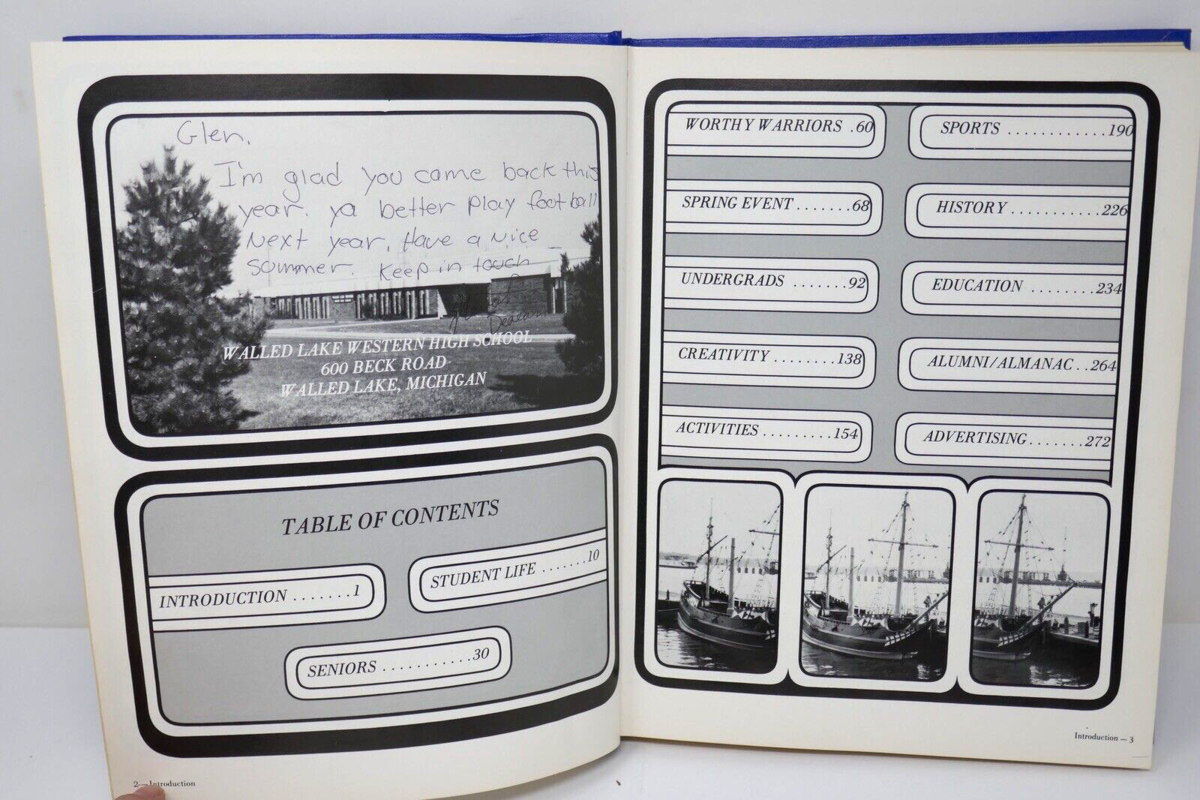 Glen,
I'm glad you came back this
year. ya better play football
Next year, Have a Nice
Sommer. Keep in touch
WALLED LAKE WESTERN HIGH SCHOOL
600 BECK ROAD
WALLED LAKE, MICHIGAN
TABLE OF CONTENTS
INTRODUCTION .......1
STUDENT LIFE .......10
SENIORS ...........30
2—Introduction
WORTHY WARRIORS .60
SPRING EVENT .......68
UNDERGRADS .......92
CREATIVITY ........138
ACTIVITIES .........154
SPORTS ............190
HISTORY ...........226
EDUCATION ........234
ALUMNI/ALMANAC ..264
ADVERTISING .......272
Introduction — 3